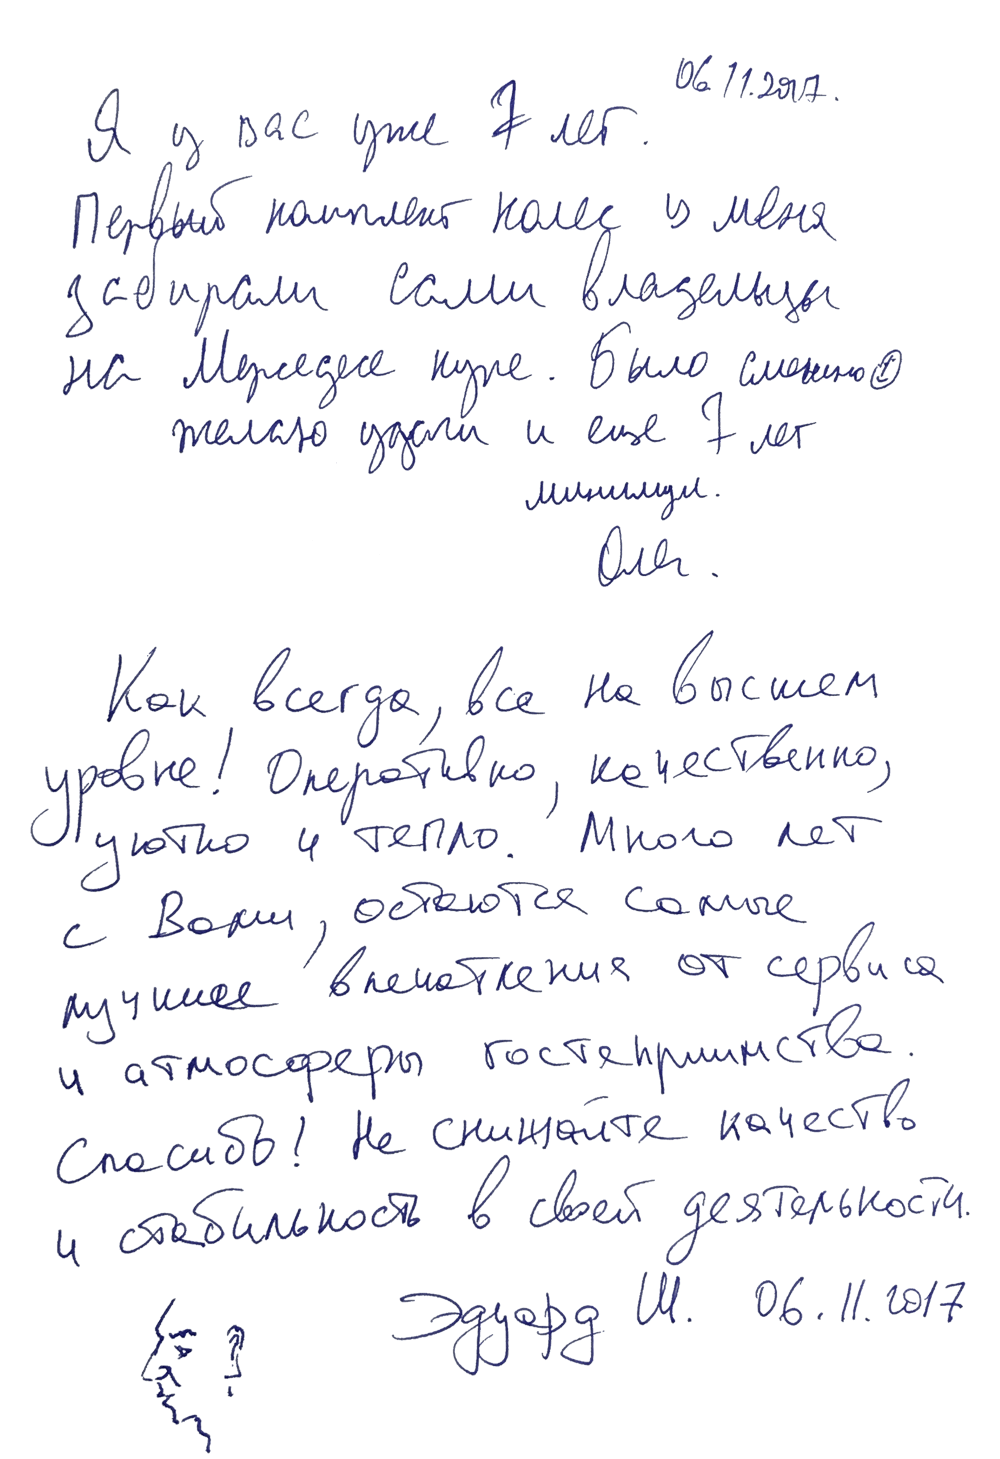 06.11.2017.
Я у вас уже 7 лет.
Первый комплект колес у меня
забирали сами владельцы
на Мерседесе купе. Было смешно
желаю удачи и еще 7 лет
минимум.
Олег.
Как всегда, все на высшем
уровне! Оперативно, качественно,
уютно и тепло. Много лет
с Вами, остаются самые
лучшие впечатления от сервиса
и атмосферы гостеприимства.
Спасибо! Не снижайте качество
и стабильность в своей деятельности.
Эдуард Ш. 06.11.2017